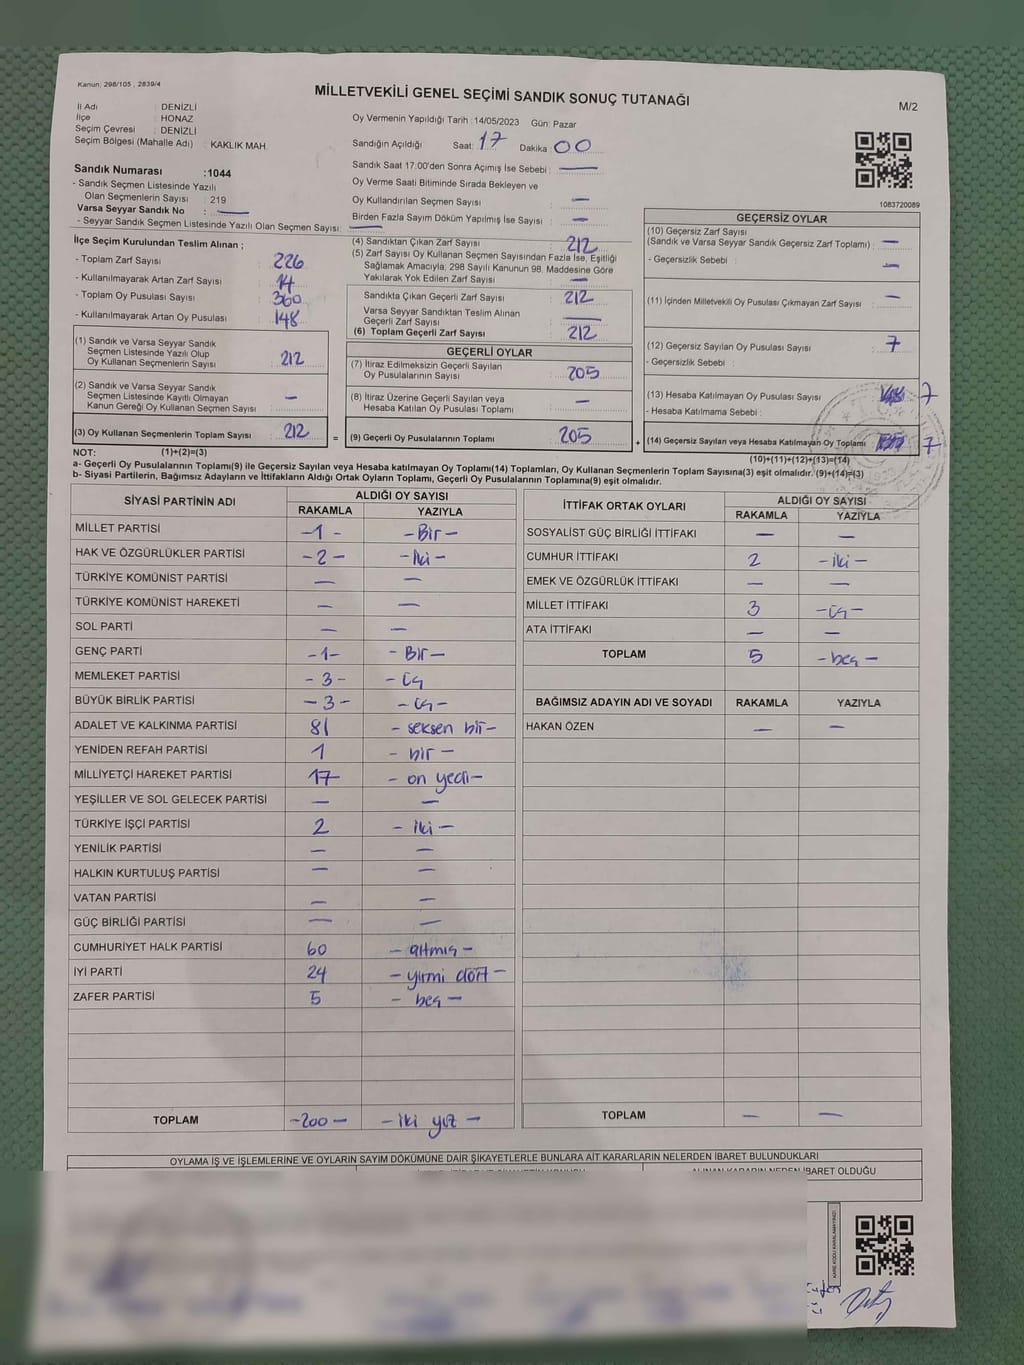 Kanun: 298/105 , 2839/4
MİLLETVEKİLİ GENEL SEÇİMİ SANDIK SONUÇ TUTANAĞI
M/2
İl Adı : DENİZLİ
İlçe : HONAZ
Seçim Çevresi : DENİZLİ
Seçim Bölgesi (Mahalle Adı) : KAKLIK MAH.
Oy Vermenin Yapıldığı Tarih : 14/05/2023 Gün: Pazar
Sandığın Açıldığı Saat: 17 Dakika 00
Sandık Saat 17:00'den Sonra Açımış İse Sebebi : —
Oy Verme Saati Bitiminde Sırada Bekleyen ve
Oy Kullandırılan Seçmen Sayısı : —
Birden Fazla Sayım Döküm Yapılmış İse Sayısı : —
1083720089
Sandık Numarası :1044
- Sandık Seçmen Listesinde Yazılı
Olan Seçmenlerin Sayısı : 219
Varsa Seyyar Sandık No : —
- Seyyar Sandık Seçmen Listesinde Yazılı Olan Seçmen Sayısı: —
İlçe Seçim Kurulundan Teslim Alınan ;
- Toplam Zarf Sayısı : 226
- Kullanılmayarak Artan Zarf Sayısı : 14
- Toplam Oy Pusulası Sayısı : 360
- Kullanılmayarak Artan Oy Pusulası : 148
(1) Sandık ve Varsa Seyyar Sandık
Seçmen Listesinde Yazılı Olup
Oy Kullanan Seçmenlerin Sayısı : 212
(2) Sandık ve Varsa Seyyar Sandık
Seçmen Listesinde Kayıtlı Olmayan
Kanun Gereği Oy Kullanan Seçmen Sayısı : —
(3) Oy Kullanan Seçmenlerin Toplam Sayısı : 212
(4) Sandıktan Çıkan Zarf Sayısı : 212
(5) Zarf Sayısı Oy Kullanan Seçmen Sayısından Fazla İse, Eşitliği
Sağlamak Amacıyla; 298 Sayılı Kanunun 98. Maddesine Göre
Yakılarak Yok Edilen Zarf Sayısı : —
Sandıkta Çıkan Geçerli Zarf Sayısı : 212
Varsa Seyyar Sandıktan Teslim Alınan
Geçerli Zarf Sayısı : —
(6) Toplam Geçerli Zarf Sayısı : 212
GEÇERLİ OYLAR
(7) İtiraz Edilmeksizin Geçerli Sayılan
Oy Pusulalarının Sayısı : 205
(8) İtiraz Üzerine Geçerli Sayılan veya
Hesaba Katılan Oy Pusulası Toplamı : —
= (9) Geçerli Oy Pusulalarının Toplamı : 205
GEÇERSİZ OYLAR
(10) Geçersiz Zarf Sayısı
(Sandık ve Varsa Seyyar Sandık Geçersiz Zarf Toplamı) : —
- Geçersizlik Sebebi : —
(11) İçinden Milletvekili Oy Pusulası Çıkmayan Zarf Sayısı : —
(12) Geçersiz Sayılan Oy Pusulası Sayısı : 7
- Geçersizlik Sebebi :
(13) Hesaba Katılmayan Oy Pusulası Sayısı : 7
- Hesaba Katılmama Sebebi :
+ (14) Geçersiz Sayılan veya Hesaba Katılmayan Oy Toplamı 7
(10)+(11)+(12)+(13)=(14)
NOT: (1)+(2)=(3)
a- Geçerli Oy Pusulalarının Toplamı(9) ile Geçersiz Sayılan veya Hesaba katılmayan Oy Toplamı(14) Toplamları, Oy Kullanan Seçmenlerin Toplam Sayısına(3) eşit olmalıdır. (9)+(14)=(3)
b- Siyasi Partilerin, Bağımsız Adayların ve İttifakların Aldığı Ortak Oyların Toplamı, Geçerli Oy Pusulalarının Toplamına(9) eşit olmalıdır.
SİYASİ PARTİNİN ADI ALDIĞI OY SAYISI
RAKAMLA YAZIYLA
MİLLET PARTİSİ -1- -Bir-
HAK VE ÖZGÜRLÜKLER PARTİSİ -2- -İki-
TÜRKİYE KOMÜNİST PARTİSİ — —
TÜRKİYE KOMÜNİST HAREKETİ — —
SOL PARTİ — —
GENÇ PARTİ -1- -Bir-
MEMLEKET PARTİSİ -3- -üç
BÜYÜK BİRLİK PARTİSİ -3- -üç-
ADALET VE KALKINMA PARTİSİ 81 -seksen bir-
YENİDEN REFAH PARTİSİ 1 -bir-
MİLLİYETÇİ HAREKET PARTİSİ 17 -on yedi-
YEŞİLLER VE SOL GELECEK PARTİSİ — —
TÜRKİYE İŞÇİ PARTİSİ 2 -iki-
YENİLİK PARTİSİ — —
HALKIN KURTULUŞ PARTİSİ — —
VATAN PARTİSİ — —
GÜÇ BİRLİĞİ PARTİSİ — —
CUMHURİYET HALK PARTİSİ 60 -altmış-
İYİ PARTİ 24 -yirmi dört-
ZAFER PARTİSİ 5 -beş-
TOPLAM -200- -iki yüz-
İTTİFAK ORTAK OYLARI ALDIĞI OY SAYISI
RAKAMLA YAZIYLA
SOSYALİST GÜÇ BİRLİĞİ İTTİFAKI — —
CUMHUR İTTİFAKI 2 -iki-
EMEK VE ÖZGÜRLÜK İTTİFAKI — —
MİLLET İTTİFAKI 3 -üç-
ATA İTTİFAKI — —
TOPLAM 5 -beş-
BAĞIMSIZ ADAYIN ADI VE SOYADI RAKAMLA YAZIYLA
HAKAN ÖZEN — —
TOPLAM — —
OYLAMA İŞ VE İŞLEMLERİNE VE OYLARIN SAYIM DÖKÜMÜNE DAİR ŞİKAYETLERLE BUNLARA AİT KARARLARIN NELERDEN İBARET BULUNDUKLARI
ALINAN KARARIN NEDEN İBARET OLDUĞU
KARE KODU KARALAMAYINIZ!